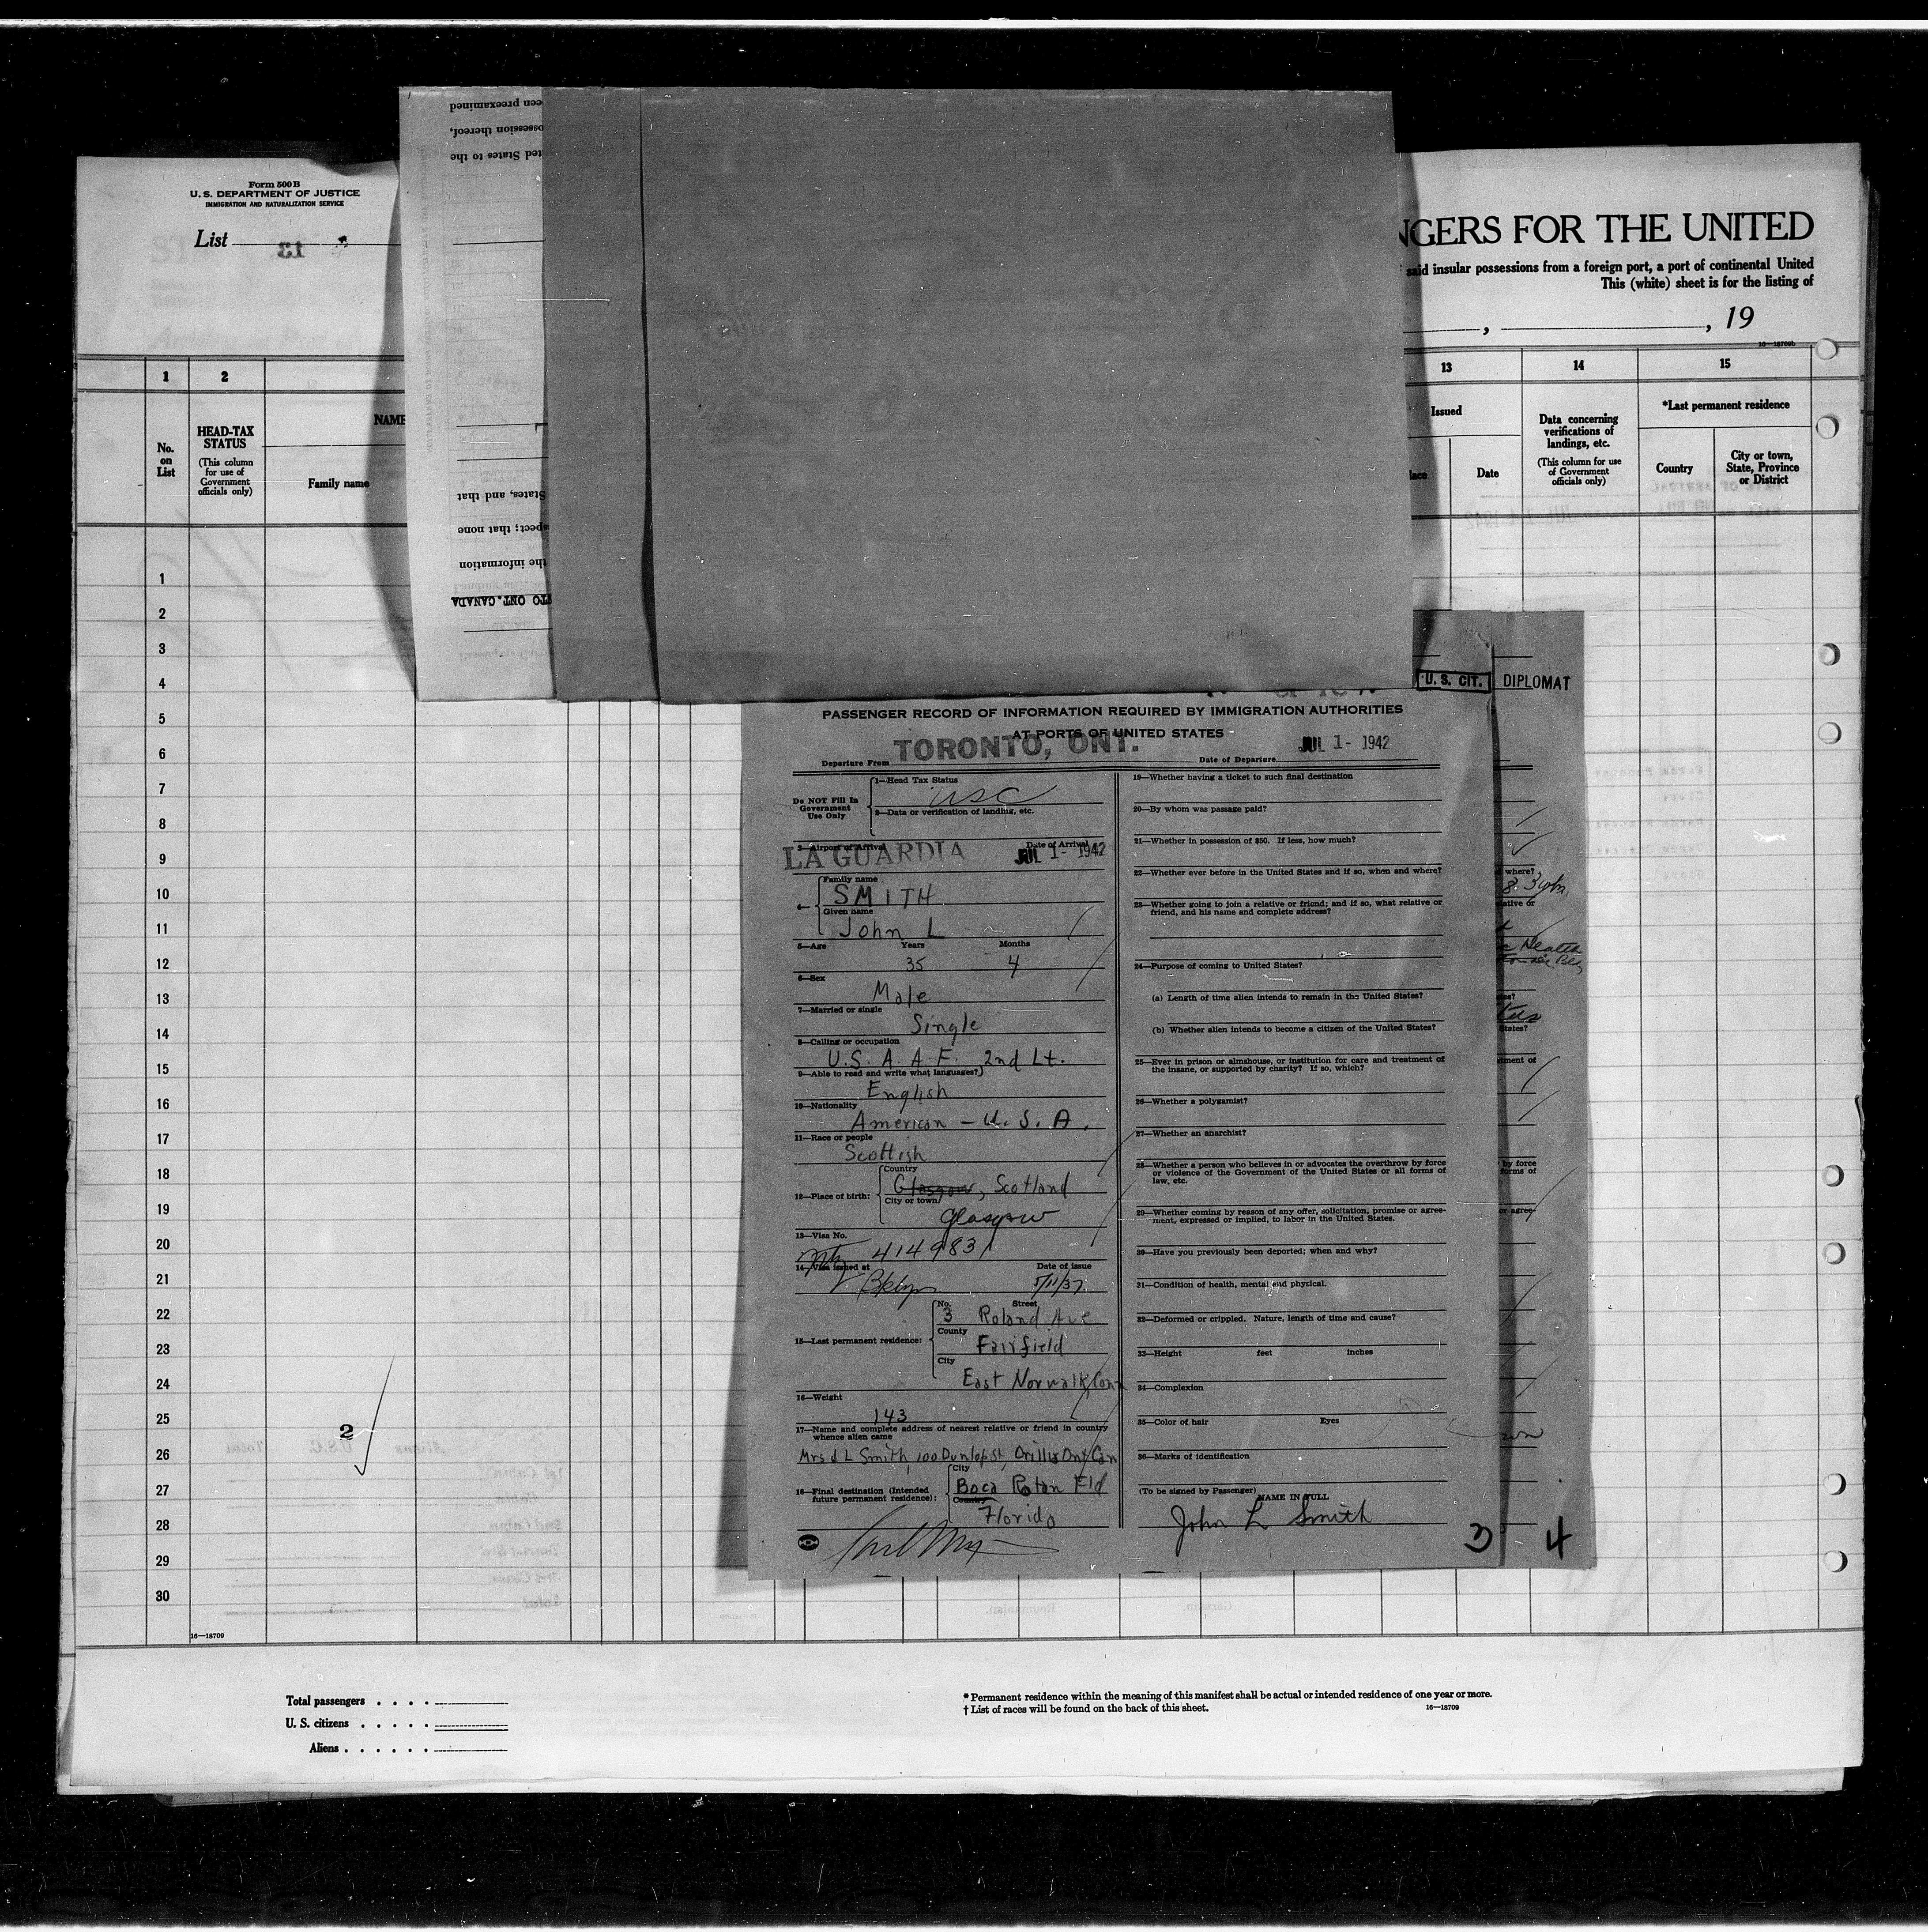 Form 500 B
U. S. DEPARTMENT OF JUSTICE
IMMIGRATION AND NATURALIZATION SERVICE
List
een preexamined
ossession thereof,
ted States to the
States, and that
spect; that none
the information
TO ONT. CANADA
NGERS FOR THE UNITED
said insular possessions from a foreign port, a port of continental United
This (white) sheet is for the listing of
, , 19
1 2 13 14 15
No. on List
HEAD-TAX STATUS
(This column for use of Government officials only)
NAME
Family name
Issued
lace
Date
Data concerning verifications of landings, etc.
(This column for use of Government officials only)
*Last permanent residence
Country
City or town, State, Province or District
1
2
3
4
5
6
7
8
9
10
11
12
13
14
15
16
17
18
19
20
21
22
23
24
25
26
27
28
29
30
2
16—18709
U. S. CIT.
DIPLOMAT
PASSENGER RECORD OF INFORMATION REQUIRED BY IMMIGRATION AUTHORITIES
AT PORTS OF UNITED STATES
Departure From TORONTO, ONT. Date of Departure JUL 1 - 1942
Do NOT Fill In
Government
Use Only
1—Head Tax Status
USC
2—Data or verification of landing, etc.
3—Airport of Arrival Date of Arrival
LA GUARDIA JUL 1 - 1942
4—
Family name
SMITH
Given name
John L
5—Age Years Months
35 4
6—Sex
Male
7—Married or single
Single
8—Calling or occupation
U.S. A. A. F. 2nd Lt.
9—Able to read and write what languages?
English
10—Nationality
American - U. S. A.
11—Race or people
Scottish
12—Place of birth:
Country
Glasgow, Scotland
City or town
Glasgow
13—Visa No.
4149831
14—Visa issued at Date of issue
Bklyn 5/11/37
15—Last permanent residence:
No. Street
3 Roland Ave
County
Fairfield
City
East Norwalk, Conn
16—Weight
143
17—Name and complete address of nearest relative or friend in country
whence alien came
Mrs J L Smith, 100 Dunlop St, Orillia Ont Can
18—Final destination (Intended
future permanent residence):
City
Boca Raton Fld
Country
Florida
19—Whether having a ticket to such final destination
20—By whom was passage paid?
21—Whether in possession of $50. If less, how much?
22—Whether ever before in the United States and if so, when and where?
23—Whether going to join a relative or friend; and if so, what relative or
friend, and his name and complete address?
24—Purpose of coming to United States?
(a) Length of time alien intends to remain in the United States?
(b) Whether alien intends to become a citizen of the United States?
25—Ever in prison or almshouse, or institution for care and treatment of
the insane, or supported by charity? If so, which?
26—Whether a polygamist?
27—Whether an anarchist?
28—Whether a person who believes in or advocates the overthrow by force
or violence of the Government of the United States or all forms of
law, etc.
29—Whether coming by reason of any offer, solicitation, promise or agree-
ment, expressed or implied, to labor in the United States.
30—Have you previously been deported; when and why?
31—Condition of health, mental and physical.
32—Deformed or crippled. Nature, length of time and cause?
33—Height feet inches
34—Complexion
35—Color of hair Eyes
36—Marks of identification
(To be signed by Passenger)
NAME IN FULL
John L Smith
3 4
Total passengers . . . .
U. S. citizens . . . . .
Aliens . . . . . .
* Permanent residence within the meaning of this manifest shall be actual or intended residence of one year or more.
† List of races will be found on the back of this sheet.
16—18709